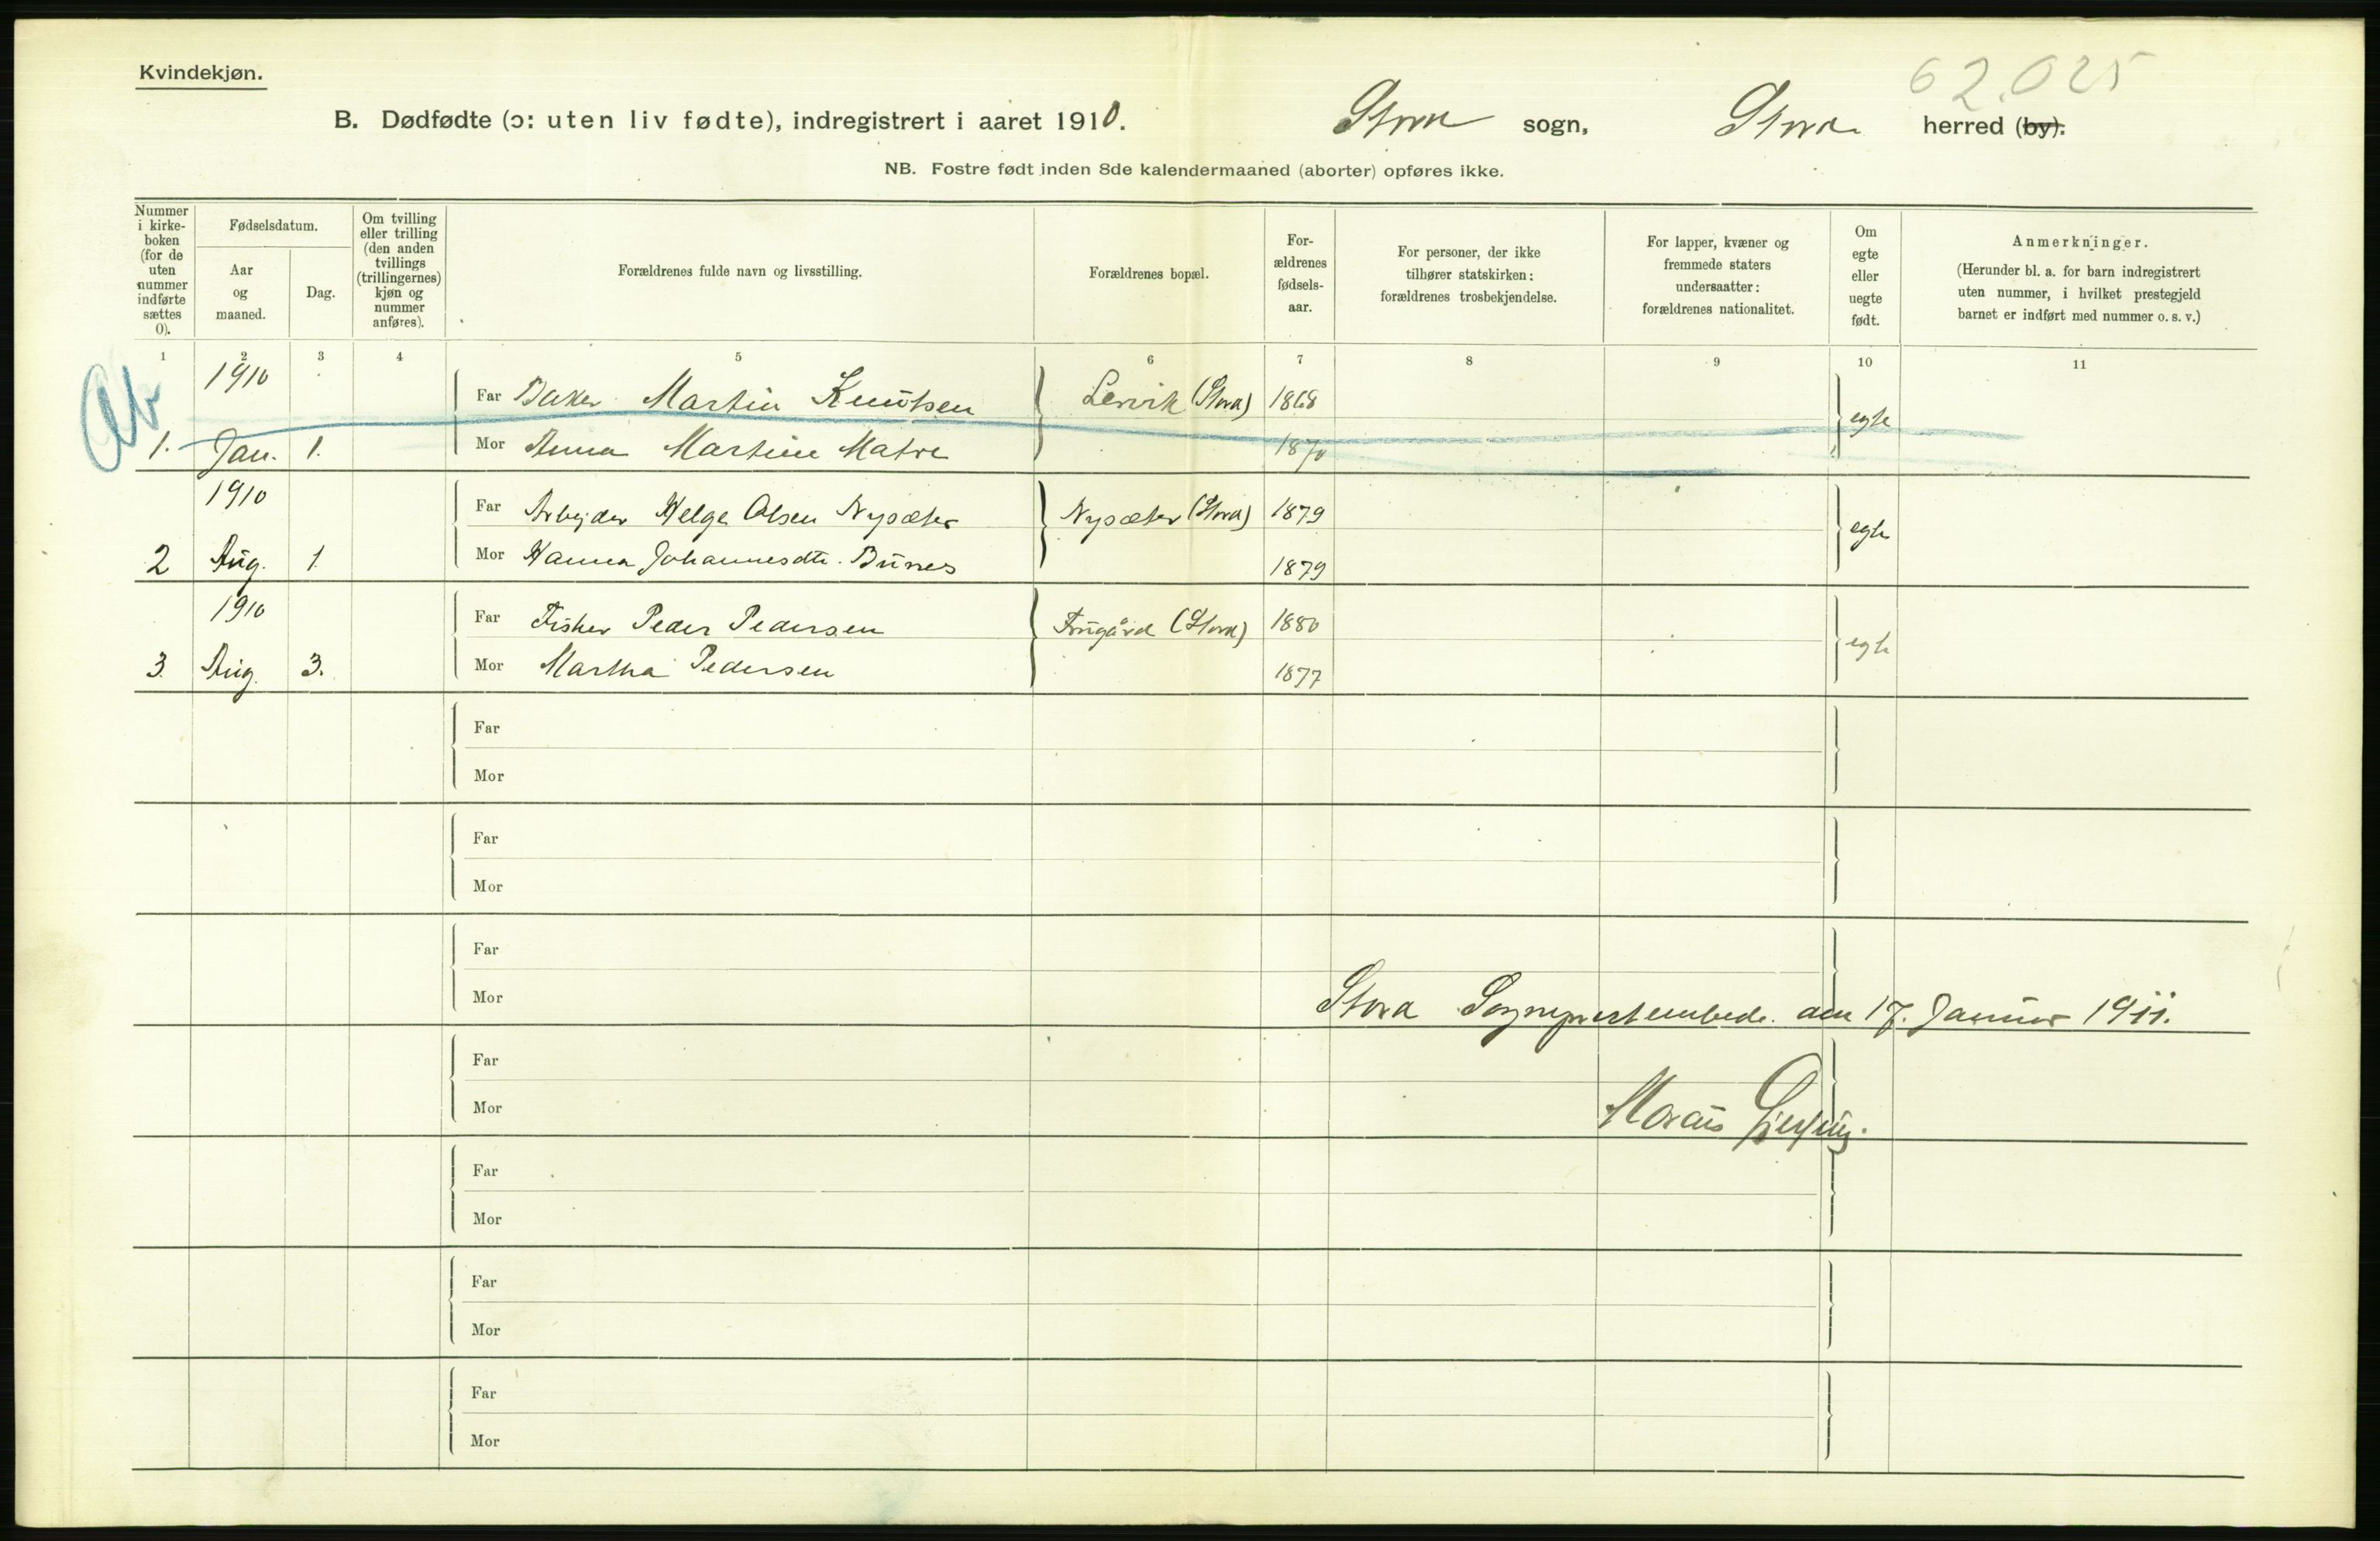 Kvindekjøn.
62.025
B. Dødfødte (ɔ: uten liv fødte), indregistrert i aaret 1910. Stord sogn, Stord herred (by).
NB. Fostre født inden 8de kalendermaaned (aborter) opføres ikke.
Nummer i kirke-boken (for de uten nummer indførte sættes 0).
Fødselsdatum.
Aar og maaned.
Dag.
Om tvilling eller trilling (den anden tvillings (trillingernes) kjøn og nummer anføres).
Forældrenes fulde navn og livsstilling.
Forældrenes bopæl.
For-ældrenes fødsels-aar.
For personer, der ikke tilhører statskirken: forældrenes trosbekjendelse.
For lapper, kvæner og fremmede staters undersaatter: forældrenes nationalitet.
Om egte eller uegte født.
Anmerkninger.
(Herunder bl. a. for barn indregistrert uten nummer, i hvilket prestegjeld barnet er indført med nummer o. s. v.)
1 2 3 4 5 6 7 8 9 10 11
Ab
1910 Far Baker Martin Knutsen Lervik (Stord) 1868 egte
1. Jan. 1. Mor Anna Martine Matre 1870
1910 Far Arbejder Helge Olsen Nysæter Nysæter (Stord) 1879 egte
2 Aug. 1 Mor Hanna Johannesdtr. Bunes 1879
1910 Far Fisker Peder Pedersen Frugård (Stord) 1880 egte
3. Aug. 3. Mor Martha Pedersen 1877
Far
Mor
Far
Mor
Far
Mor
Stord Sogneprestembede. den 17. Januar 1911.
Far
Mor
Far
Mor
Far
Mor
Far
Mor